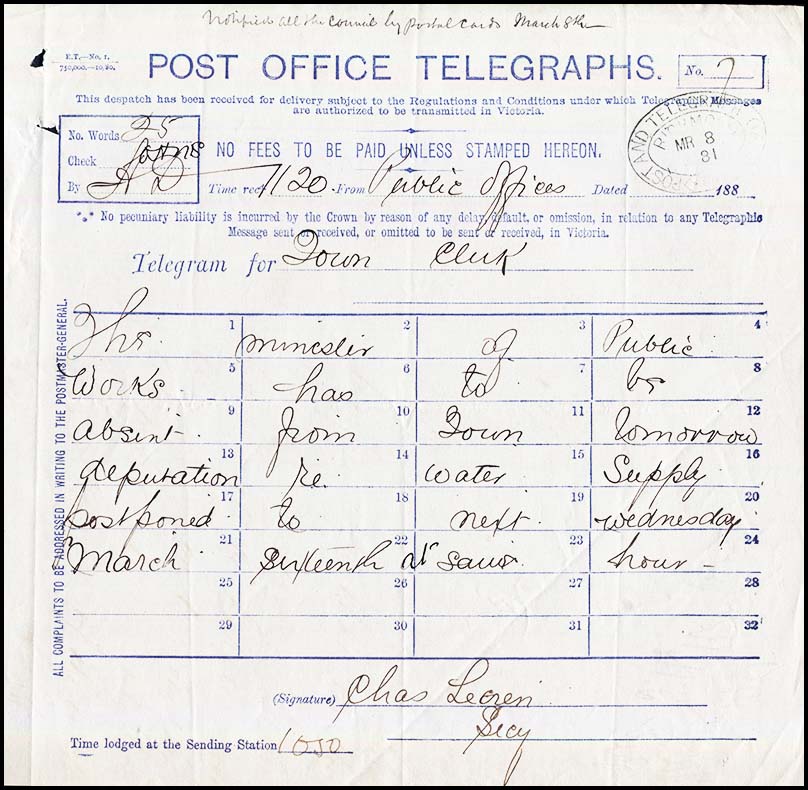 Notified all the council by postal cards March 8th
E.T.—No. 1.
750,000.—10,80.
POST OFFICE TELEGRAPHS.
No. 7
This despatch has been received for delivery subject to the Regulations and Conditions under which Telegraphic Messages
are authorized to be transmitted in Victoria.
POST AND TELEGRAPH
RICHMOND
MR 8
81
No. Words 25
Check
By
NO FEES TO BE PAID UNLESS STAMPED HEREON.
Time rec'd 1120 From Public Offices Dated 188
*** No pecuniary liability is incurred by the Crown by reason of any delay, default, or omission, in relation to any Telegraphic
Message sent or received, or omitted to be sent or received, in Victoria.
Telegram for Town Clerk
The 1 minister 2 of 3 Public 4
Works 5 has 6 to 7 be 8
absent 9 from 10 Town 11 tomorrow 12
deputation 13 re 14 water 15 Supply 16
postponed 17 to 18 next 19 wednesday 20
March 21 Sixteenth at 22 same 23 hour 24
25 26 27 28
29 30 31 32
ALL COMPLAINTS TO BE ADDRESSED IN WRITING TO THE POSTMASTER-GENERAL.
(Signature) Chas Lecren
Secy
Time lodged at the Sending Station 1050